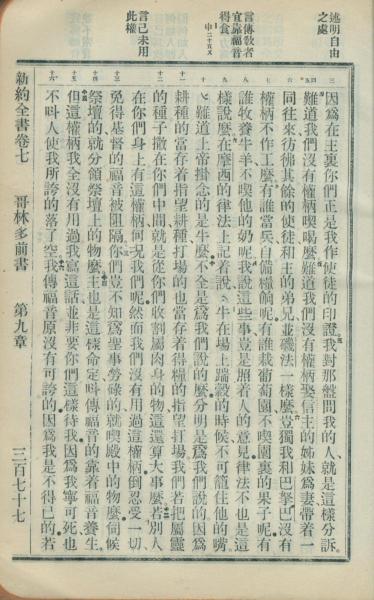 述明自由
之處
言傳教者
宜靠福音
得食
言己未用
此權
因爲在主裏、你們正是我作使徒的印證、我對那盤問我的人、就是這樣分訴、
難道我們沒有權柄喫喝麼、難道我們沒有權柄娶信主的姊妹爲妻、帶着一
同往來、彷彿其餘的使徒、和主的弟兄、並磯法一樣麼、豈獨我和巴拏巴沒有
權柄不作工麼、有誰當兵、自備糧餉呢、有誰栽葡萄園、不喫園裏的果子呢、有
誰牧養牛羊、不喫他的奶呢、我說這些事、豈是照着人的意見、律法不也是這
樣說麼、在摩西的律法上記着說、牛在場上踹穀的時候、不可籠住他的嘴、
難道上帝掛念的是牛麼、不全是爲我們說的麼、分明是爲我們說的、因爲
耕種的當存着指望耕種、打場的也當存着得糧的指望打場、我們若把屬靈
的種子撒在你們中間、就是從你們收割屬肉身的物、這還算大事麼、若別人
在你們身上有這權柄、何況我們呢、然而我們沒有用過這權柄、倒忍受一切、
免得基督的福音被阻隔、你們豈不知爲聖事勞碌的、就喫殿中的物麼、伺候
祭壇的、就分領祭壇上的物麼、主也是這樣命定、呌傳福音的靠着福音養生、
但這權柄我全沒有用過、我寫這話、並非要你們這樣待我、因爲我寧可死、也
不呌人使我所誇的落了空、我傳福音原沒有可誇的、因爲我是不得已的、若
新約全書卷七　哥林多前書　第九章　三百七十七